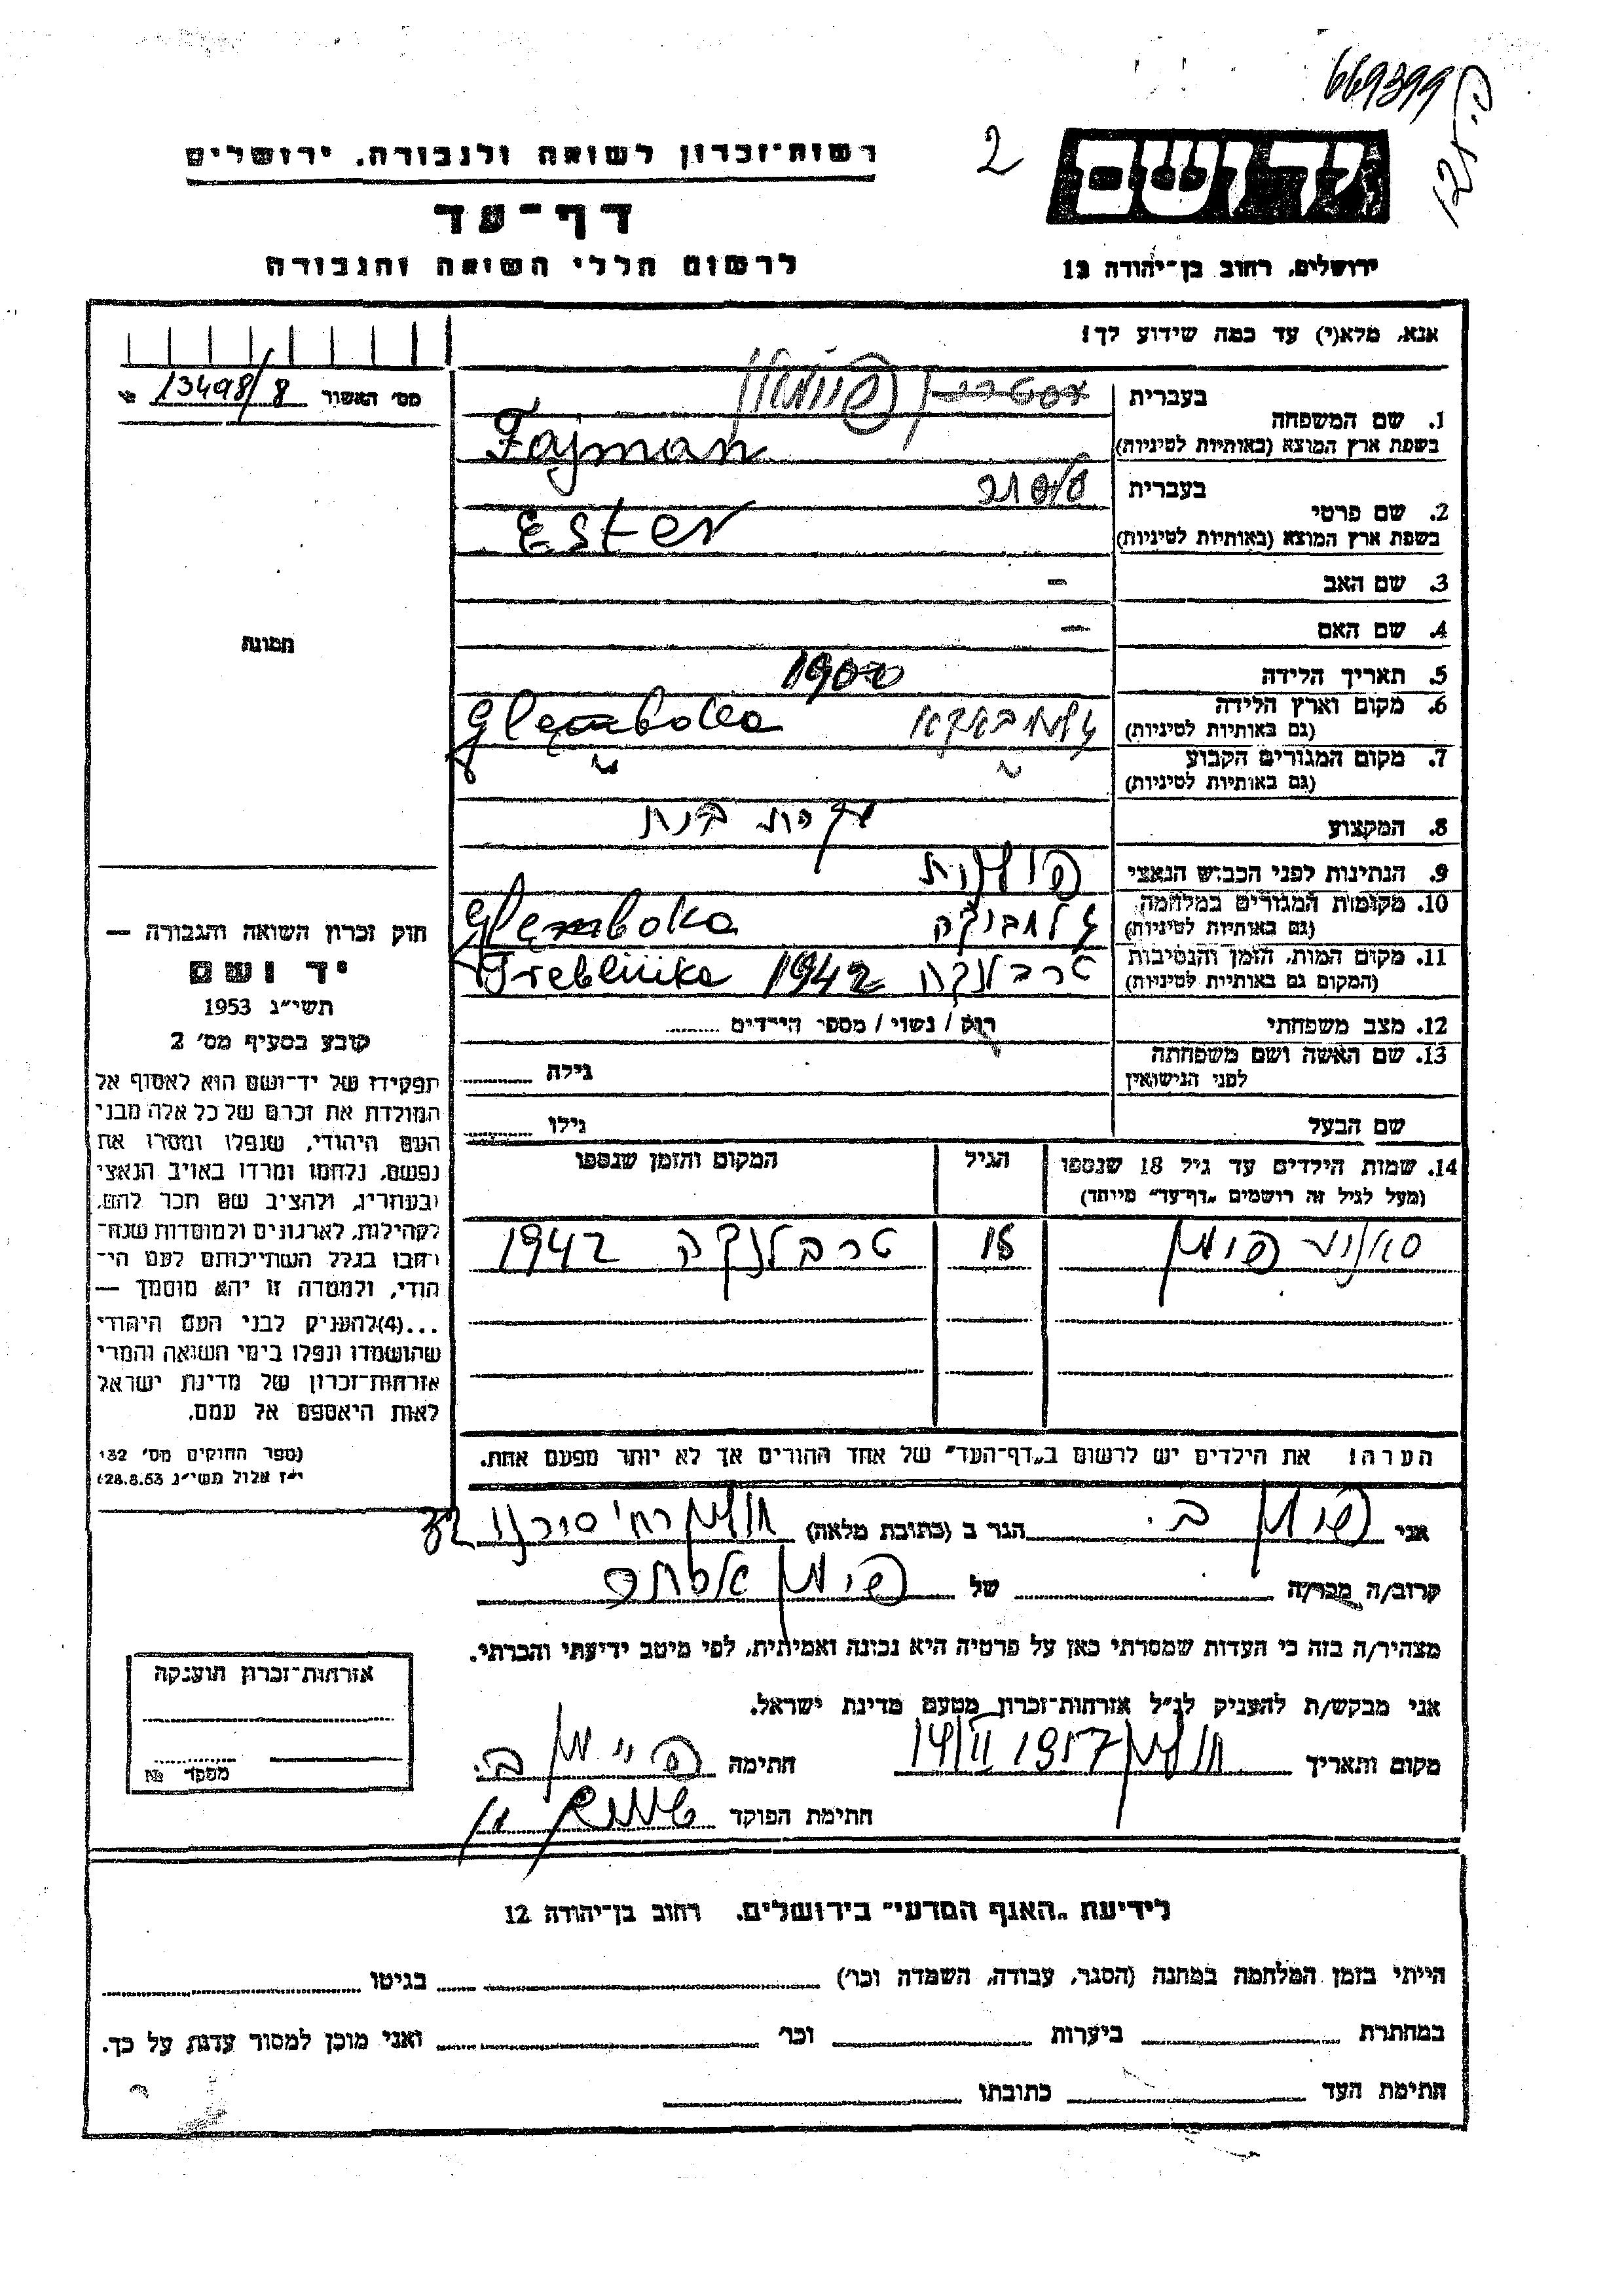 669399
2
ידושם
רשות־זכרון לשואה ולגבורה, ירושלים
דף־עד
לרשום חללי השואה והגבורה
ירושלים, רחוב בן־יהודה 12
אנא, מלא(י) עד כמה שידוע לך!
מס' האשור 13498/8 №
1. שם המשפחה
בעברית פיימאן
בשפת ארץ המוצא (באותיות לטיניות) Fajman
2. שם פרטי
בעברית
בשפת ארץ המוצא (באותיות לטיניות) Ester
3. שם האב –
4. שם האם –
תמונה
5. תאריך הלידה 1900
6. מקום וארץ הלידה
(גם באותיות לטיניות) Glemboka
7. מקום המגורים הקבוע
(גם באותיות לטיניות) " "
8. המקצוע עקרת בית
9. הנתינות לפני הכבוש הנאצי פולנית
10. מקומות המגורים במלחמה
(גם באותיות לטיניות) Glemboka
11. מקום המות, הזמן והנסיבות
(המקום גם באותיות לטיניות) טרבלנקה 1942 Treblinka
12. מצב משפחתי רוק / נשוי / מספר הילדים
13. שם האשה ושם משפחתה
לפני הנישואין גילה
שם הבעל גילו
14. שמות הילדים עד גיל 18 שנספו הגיל המקום והזמן שנספו
(מעל לגיל זה רושמים "דף־עד" מיוחד)
פימן 18 טרבלנקה 1942
הערה! את הילדים יש לרשום ב"דף־העד" של אחד ההורים אך לא יותר מפעם אחת.
חוק זכרון השואה והגבורה —
יד ושם
תשי"ג 1953
קובע בסעיף מס' 2
תפקידו של יד־ושם הוא לאסוף אל
המולדת את זכרם של כל אלה מבני
העם היהודי, שנפלו ומסרו את
נפשם, נלחמו ומרדו באויב הנאצי
ובעוזריו, ולהציב שם וזכר להם,
לקהילות, לארגונים ולמוסדות שנח־
רבו בגלל השתייכותם לעם הי־
הודי, ולמטרה זו יהא מוסמך —
...(4)להעניק לבני העם היהודי
שהושמדו ונפלו בימי השואה והמרי
אזרחות־זכרון של מדינת ישראל
לאות היאספם אל עמם.
(ספר החוקים מס' 132
י"ז אלול תשי"ג 28.8.53)
אני פימן ב. הגר ב (כתובת מלאה) חולון רח' סוקולוב
קרוב/ה מכר/ה של פימן אסתר
מצהיר/ה בזה כי העדות שמסרתי כאן על פרטיה היא נכונה ואמיתית, לפי מיטב ידיעתי והכרתי.
אני מבקש/ת להעניק לנ"ל אזרחות־זכרון מטעם מדינת ישראל.
מקום ותאריך חולון 14/II 1957 חתימה פיימן ב.
חתימת הפוקד
אזרחות־זכרון הוענקה
מספר №
לידיעת "האגף המדעי" בירושלים, רחוב בן־יהודה 12
הייתי בזמן המלחמה במחנה (הסגר, עבודה, השמדה וכו') בגיטו
במחתרת ביערות וכו' ואני מוכן למסור עדות על כך.
חתימת העד כתובתו